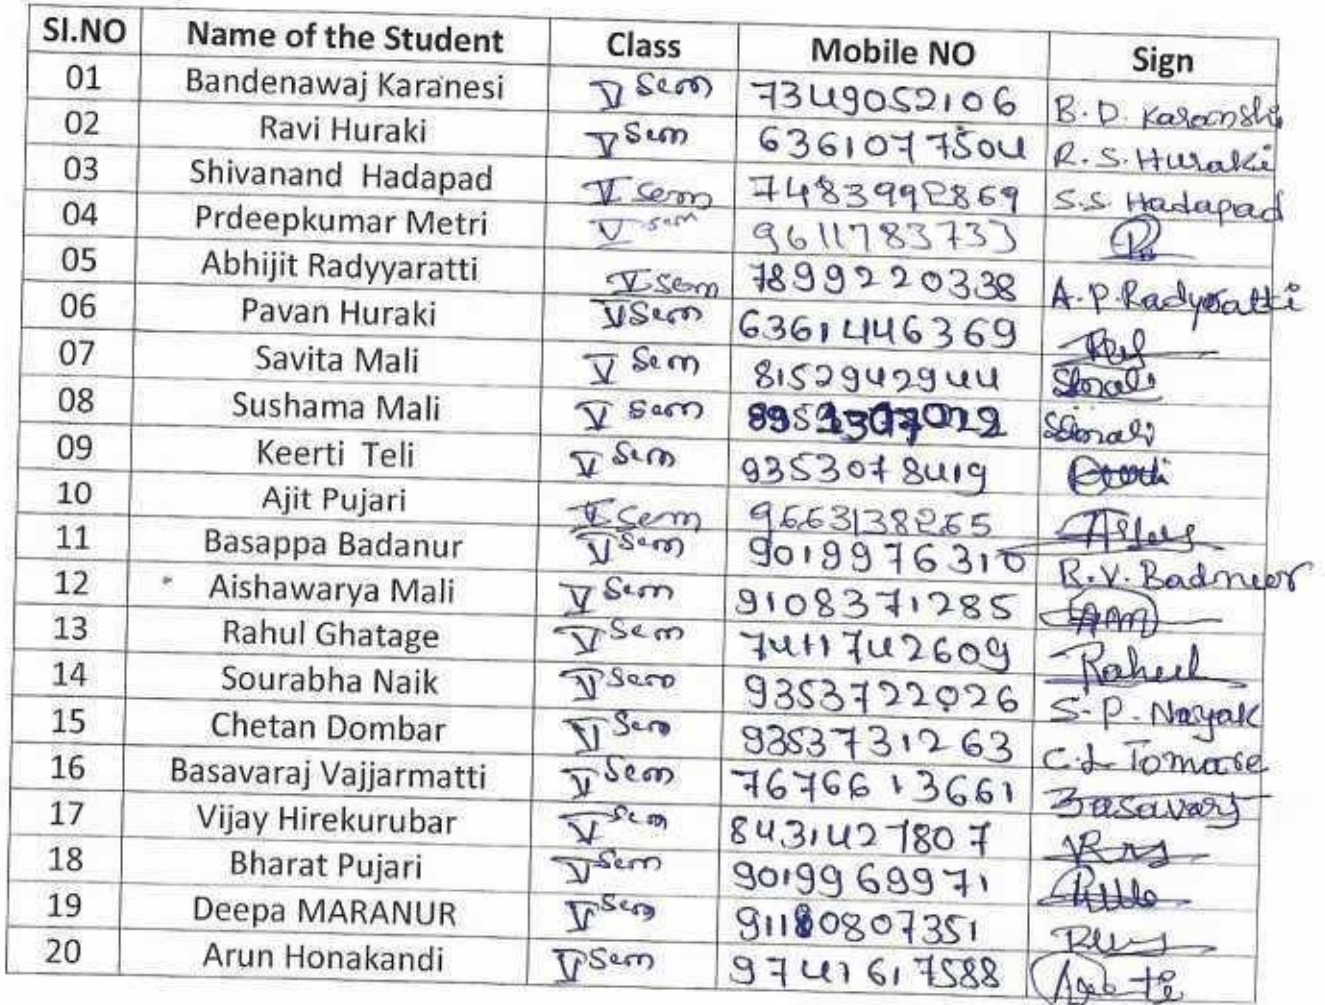 SI.NO Name of the Student Class Mobile NO Sign
01 Bandenawaj Karanesi V Sem 7349052106 B. D. Karanshi
02 Ravi Huraki V Sem 6361077504 R. S. Huraki
03 Shivanand Hadapad V Sem 7483992869 S.S. Hadapad
04 Prdeepkumar Metri V Sem 9611783733
05 Abhijit Radyyaratti V Sem 7899220338 A. P. Radyratti
06 Pavan Huraki V Sem 6361446369
07 Savita Mali V Sem 8152942944 Smali
08 Sushama Mali V Sem Smali
09 Keerti Teli V Sem 9353078419
10 Ajit Pujari V Sem 9663138265
11 Basappa Badanur V Sem 9019976310 B. V. Badneor
12 Aishawarya Mali V Sem 9108371285
13 Rahul Ghatage V Sem 7411742609 Rahul
14 Sourabha Naik V Sem 9353722026 S. P. Nayak
15 Chetan Dombar V Sem 9353731263 C. L Tomare
16 Basavaraj Vajjarmatti V Sem 7676613661 Basavarj
17 Vijay Hirekurubar V Sem 8431427807
18 Bharat Pujari V Sem 9019969971
19 Deepa MARANUR V Sem
20 Arun Honakandi V Sem 9741617588